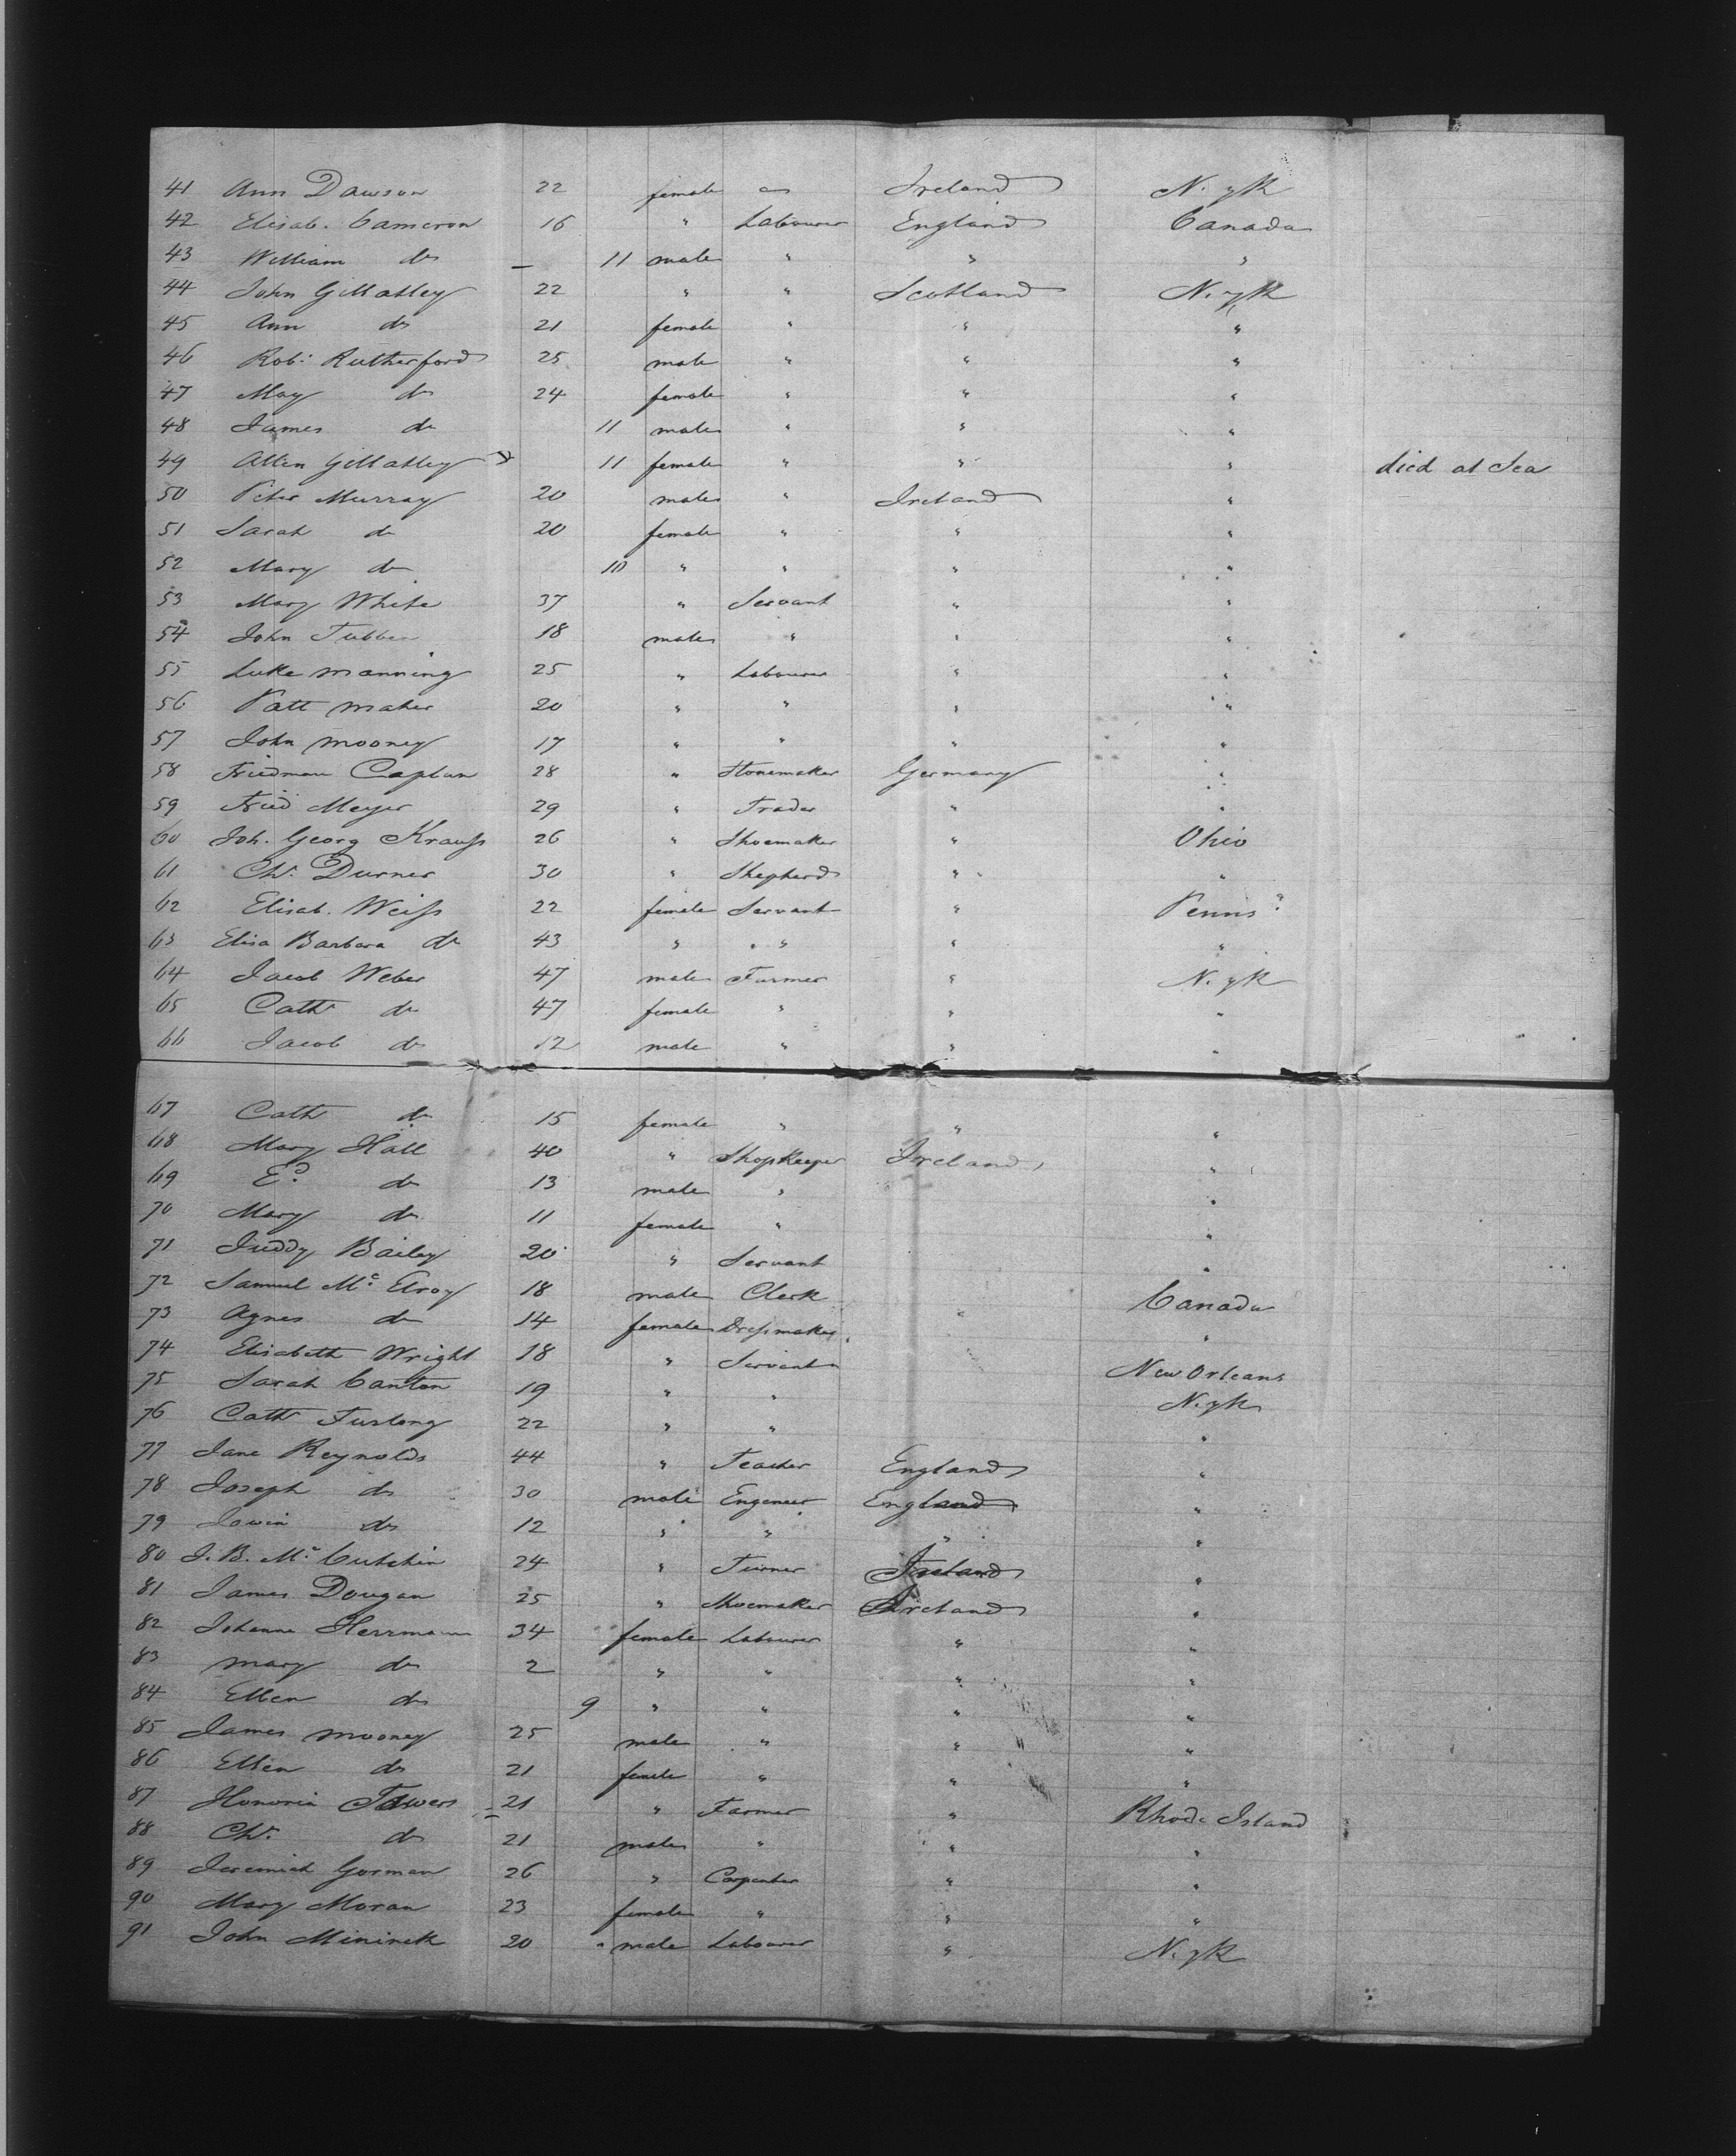 41 Ann Dawson 22 female Ireland N. yk
42 Elisab. Cameron 16 " Labourer England Canada
43 William do — 11 male " " "
44 John Gillatley 22 " " Scotland N. yk
45 Ann do 21 female " " "
46 Rob: Rutherford 25 male " " "
47 May do 24 female " " "
48 James do 11 male " " "
49 Allen Gillatley 11 female " " " died at Sea
50 Peter Murray 20 male " Ireland "
51 Sarah do 20 female " " "
52 Mary do 10 " " " "
53 Mary White 37 " Servant " "
54 John 18 male " " "
55 Luke Manning 25 " Labourer " "
56 Patt Maher 20 " " " "
57 John Mooney 17 " " " "
58 Friedman Caplan 28 " Germany "
59 Fried Meyer 29 " Trader " "
60 Joh. Georg Krauss 26 " Shoemaker " Ohio
61 Chr. Durner 30 " Shepherd " "
62 Elisab. Weiss 22 female Servant " Penns.
63 Elisa Barbara do 43 " " " "
64 Jacob Weber 47 male Farmer " N. yk
65 Cath do 47 female " " "
66 Jacob do 12 male " " "
67 Cath do 15 female " " "
68 Mary Hall 40 " Shopkeeper Ireland "
69 Ed do 13 male " "
70 Mary do 11 female " "
71 Juddy Bailey 20 " Servant "
72 Samuel Mc Elroy 18 male Clerk Canada
73 Agnes do 14 female Dressmaker " "
74 Elisabeth Wright 18 " Servant New Orleans
75 Sarah Canton 19 " " N. yk
76 Cath Furlong 22 " " "
77 Jane Reynolds 44 " Teacher England "
78 Joseph do 30 male Engeneer England "
79 do 12 " " " "
80 J. B. Mc Cutchin 24 " Turner Ireland "
81 James Dougan 25 " Shoemaker Ireland "
82 Johanna Herrmann 34 female Labourer " "
83 Mary do 2 " " " "
84 Ellen do 9 " " " "
85 James Mooney 25 male " " "
86 Ellen do 21 female " " "
87 Honoria Towers 21 " Farmer " Rhode Island
88 Chr. do 21 male " " "
89 Jeremiah Gorman 26 " Carpenter " "
90 Mary Moran 23 female " " "
91 John 20 male Labourer " N. yk